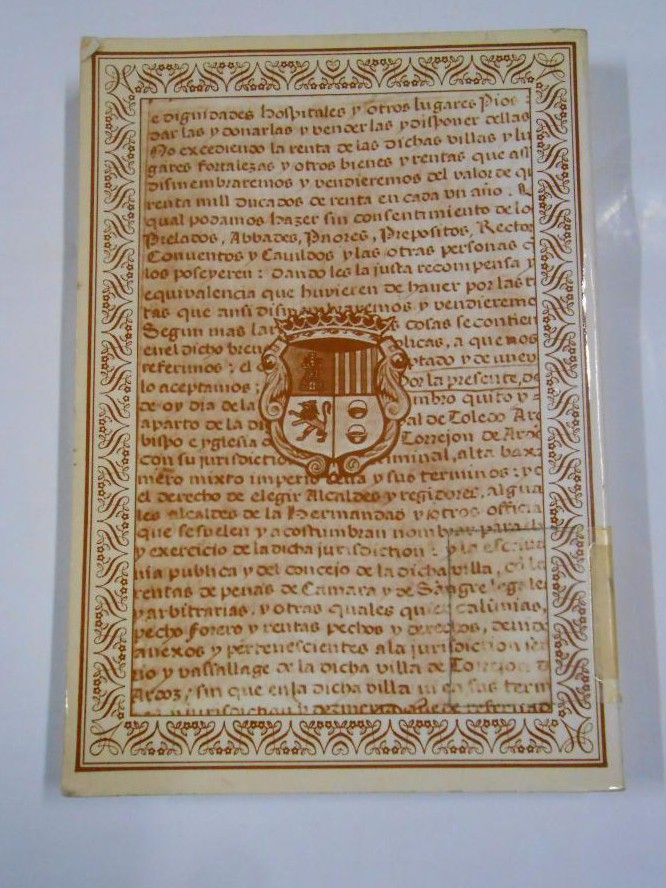 e dignidades hospitales y otros lugares Pios
dar las y donarlas y vender las y disponer dellas
No excediendo la renta de las dichas villas y lu
gares fortalezas y otros bienes y rentas que assi
dismembraremos y vendieremos del valor de qu
renta mill ducados de renta en cada vn año.
qual podamos hazer sin consentimiento de lo
Prelados, Abbades, Priores, Prepositos, Rector
Conventos y Cavildos y las otras personas q
los poseyeren: dando les la justa recompensa y
equivalencia que huvieren de haver por las r
tas que ansi dismembraremos y vendieremo
Segun mas lar s cosas se contien
en el dicho brev olicas, a que nos
referimos: el ptado y de nuevo
lo aceptamos: Por la presente, de
de oy dia de la mbro quito y
aparto de la di al de Toledo Arç
bispo e yglesia d Torrejon de Ardo
con su jurisdiction riminal, alta baxa
mero mixto imperio y sus terminos: y c
el derecho de elegir Alcaldes y regidores, algua
les alcaldes de la Hermandad y otros officia
que se suelen y acostumbran nombrar para el
y exercicio de la dicha jurisdiction: y la escriva
nia publica y del concejo de la dicha villa, co la
rentas de penas de Camara y de Sangre lega les
y arbitrarias, y otras quales quier calumias,
pecho forero y rentas pechos y derechos, demas
anexos y pertenescientes a la jurisdiction señ
rio y vassallage de la dicha villa de Torrejon d
Ardoz, sin que en la dicha villa ni en sus term